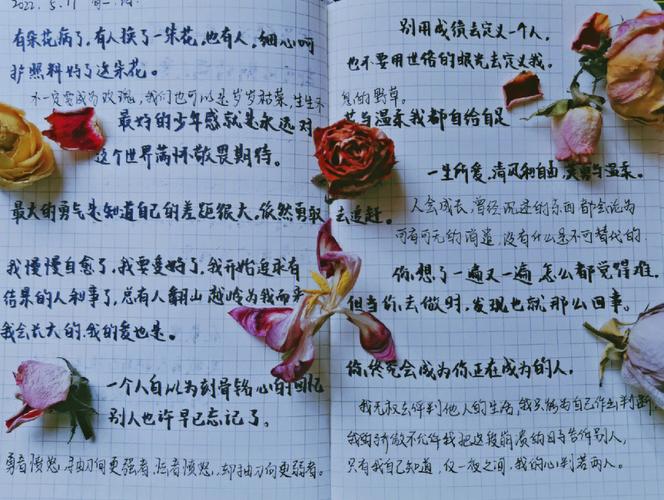 2022. 5. 11
有朵花病了，有人换了一朵花，也有人，细心呵
护照料好了这朵花。
不一定要成为玫瑰，我们也可以是岁岁枯荣，生生不
最好的少年感就是永远对
这个世界满怀敬畏期待。
最大的勇气是知道自己的差距很大，依然勇敢去追赶。
我慢慢自愈了，我要变好了，我开始追求有
结果的人和事了，总有人翻山越岭为我而来
我会长大的，我的爱也是。
一个人自以为刻骨铭心的回忆
别人也许早已忘记了。
勇者愤怒，抽刃向更强者，怯者愤怒，却抽刃向更弱者。
别用成绩去定义一个人，
也不要用世俗的眼光去定义我。
息的野草。
与温柔我都自给自足
一生所爱，清风和自由，与温柔。
人会成长，曾经沉迷的东西都会沦为
可有可无的消遣，没有什么是不可替代的。
你想了一遍又一遍 怎么都觉得难，
但当你去做时，发现也就那么回事。
你终究会成为你正在成为的人。
我无权去评判他人的生活，我只能为自己作出判断
我的骄傲不允许我把这段崩溃的日子告诉别人，
只有我自己知道，仅一夜之间，我的心判若两人。